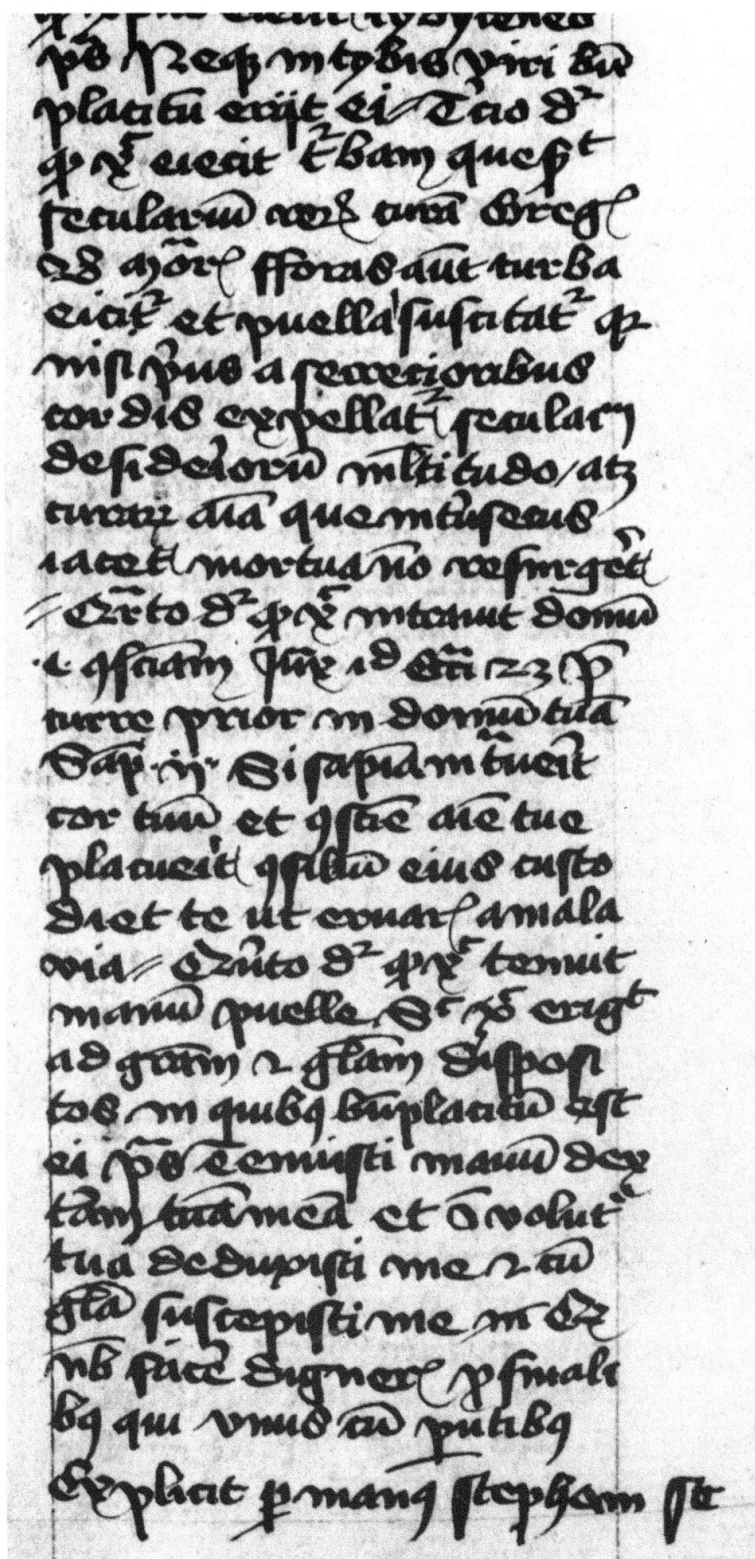 tybicenes
ps̄ Neqꝫ in tybiis viri bn̄
placitū erit ei Tcio dr
ꝙ xp̄c eiecit tbam que
seculariū curā Greg
mor fforas aūt turba
eicit et puella suscitat qꝛ
nisi pͥus a secrecioribus
cordis expellat seculariū
desideriorū mltitudo / atꝫ
curaꝝ aīa que intͥnsecus
iacet mortua nō resurget
Qrto dr ꝙ xp̄c intrauit domū
.i. ꝯsciam Jux id Eccī 23 p̄
curre prior in domū tuā
Sap̄ .ii. Si sapīa intueīt
cor tuū et ꝯscie aīe tue
placueīt ꝯsiliū eius custo
diet te ut eruar a mala
via Quīto dr ꝙ xp̄c tenuit
manū puelle Sc xp̄c erigt
ad grām ⁊ glām disposi
tos in quibꝰ bn̄placitū est
ei ps̄ Tenuisti manū dex
tam tuā meā et ī volūt
tua deduxisti me ⁊ cū
glā suscepisti me in
nb̄ face digner p̄ finali
bꝰ qui viuus cū putibꝰ
Explicit ꝑ manꝰ stephani